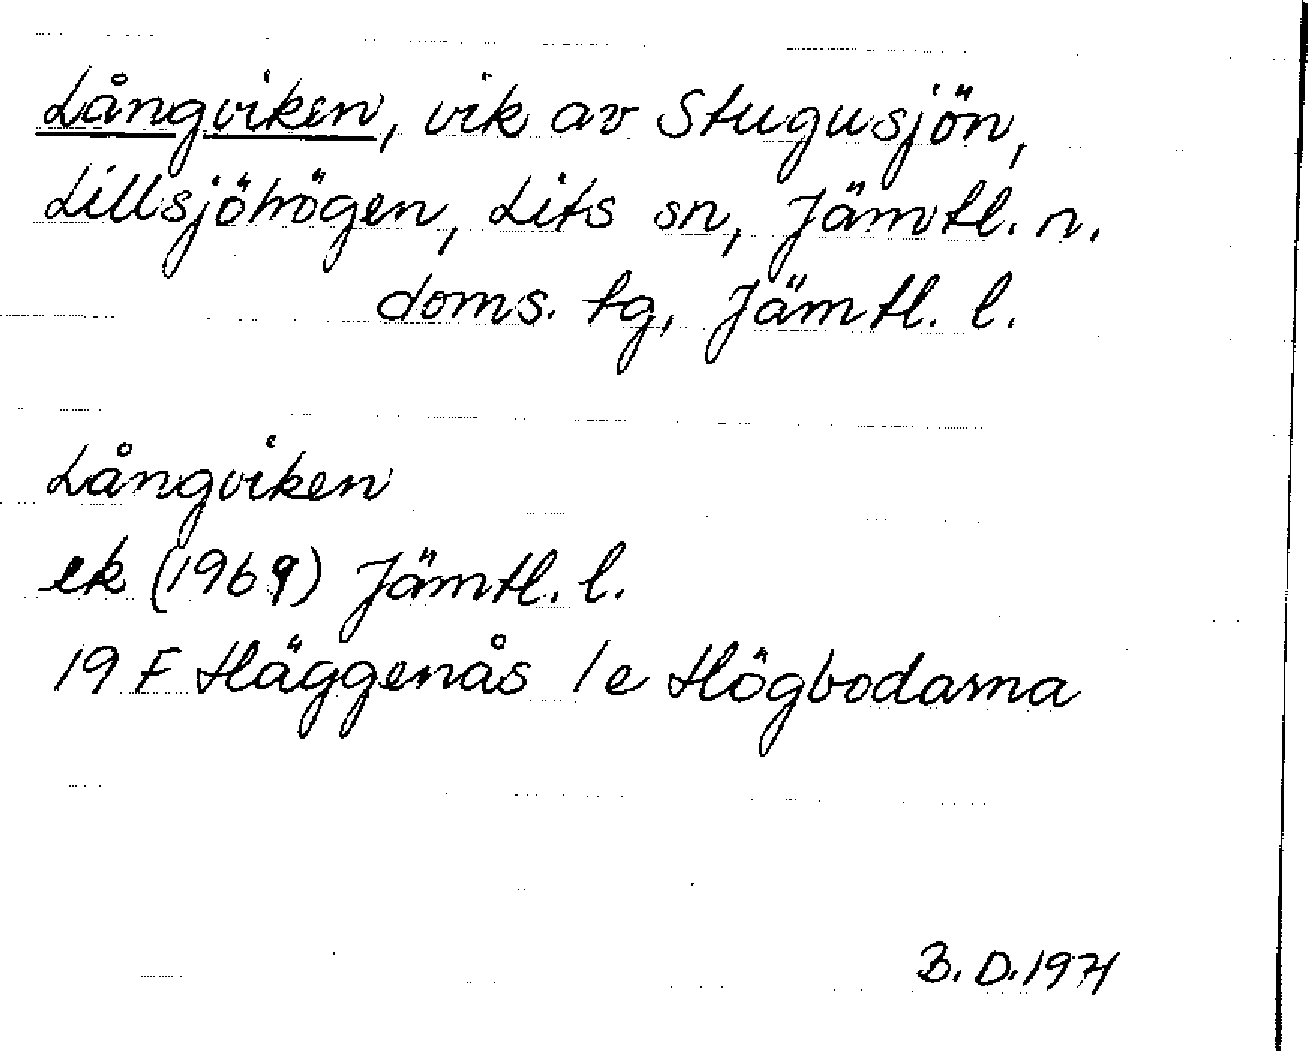 Långviken, vik av Stugusjön,
Lillsjöhögen, Lits sn, Jämtl. n.
doms. tg, Jämtl. l.
Långviken
ek (1969) Jämtl. l.
19 F Häggenås 1e Högbodarna
B. D. 1971